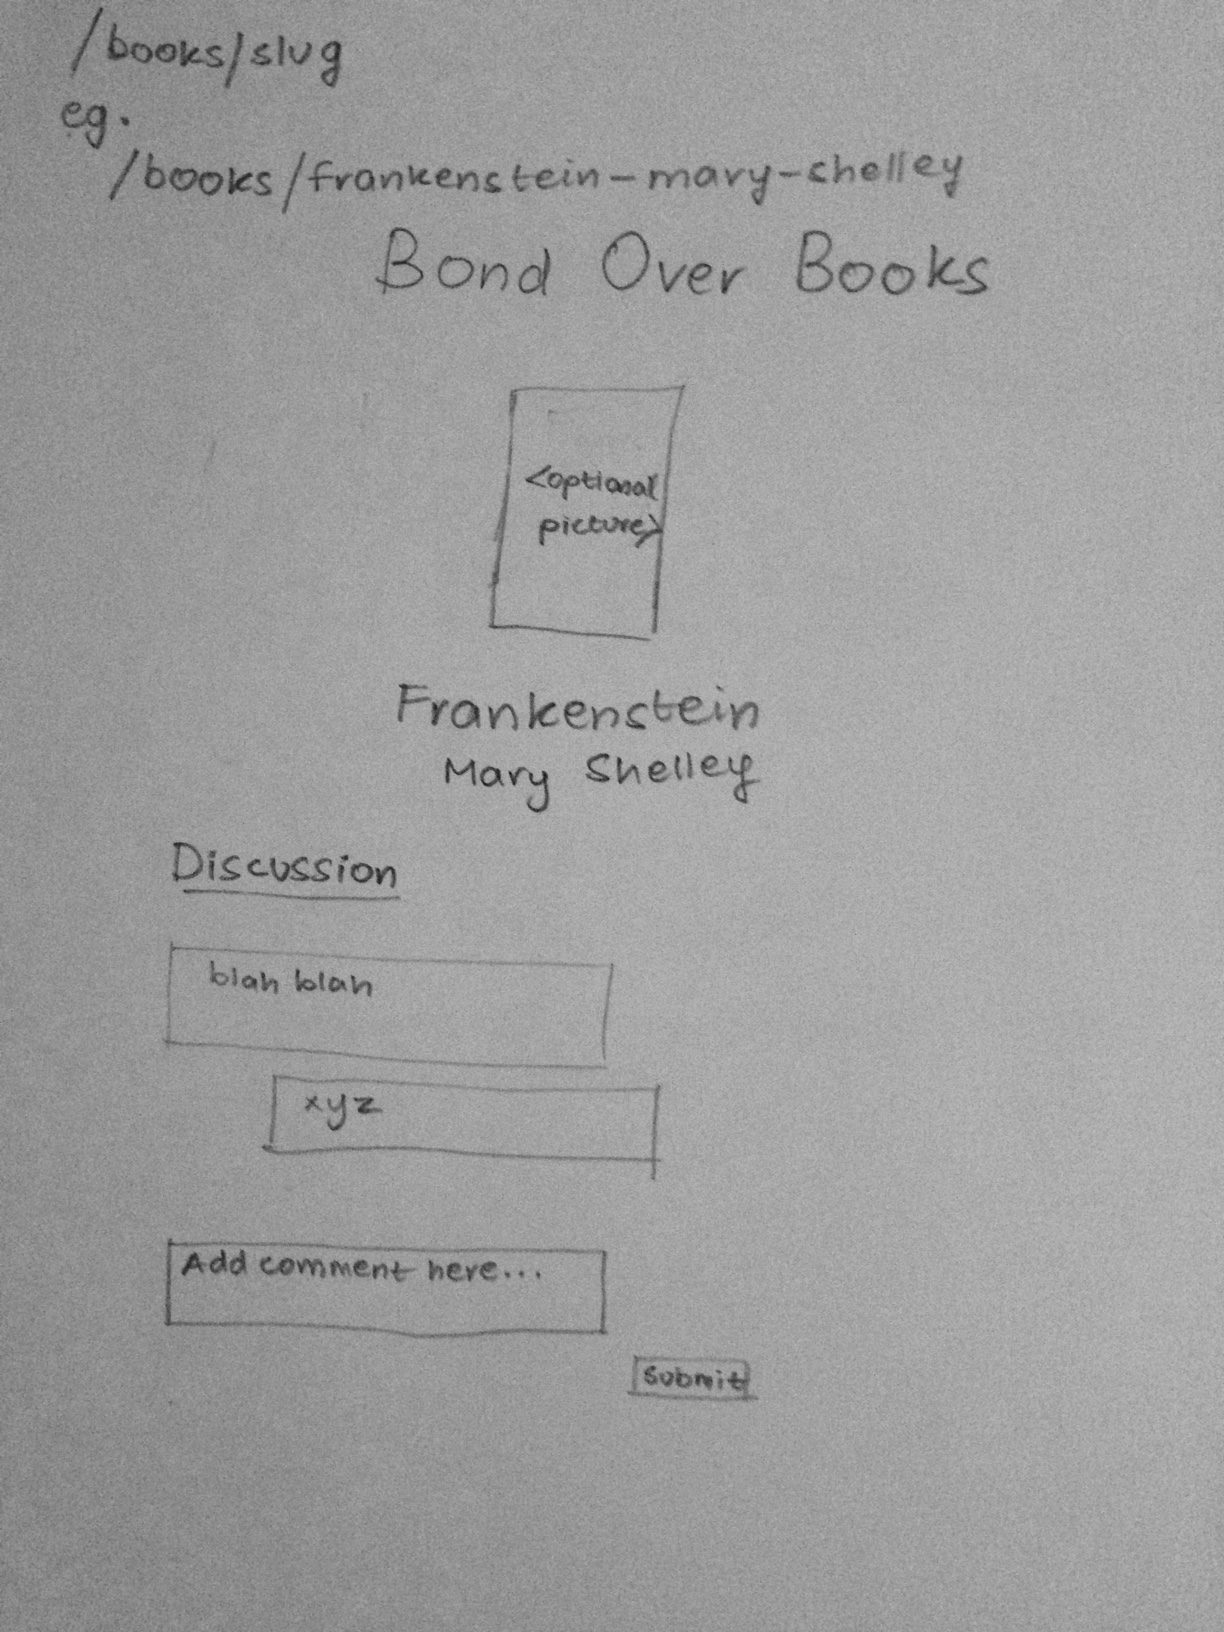 /books/slug
eg.
/books/frankenstein-mary-shelley
Bond Over Books
<optional
picture>
Frankenstein
Mary Shelley
Discussion
blah blah
xyz
Add comment here...
submit